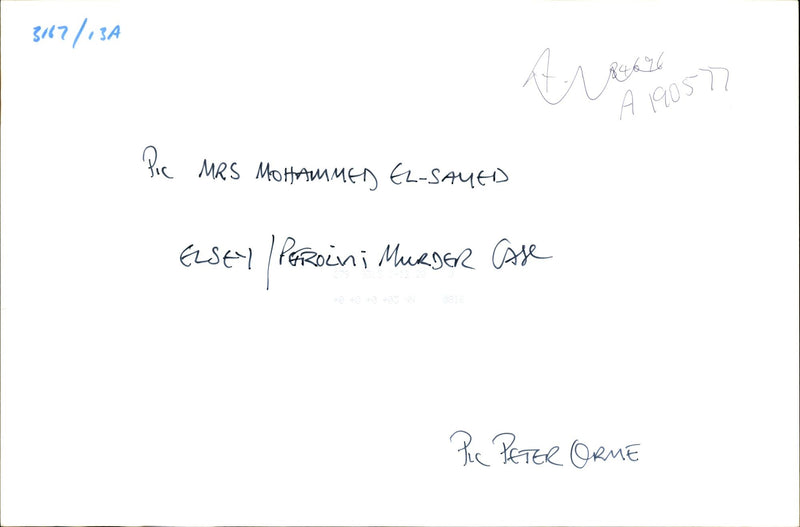 3167/13A
84696
A 190577
Pic MRS MOHAMMED EL-SAYED
ELSEY/PEROLINI MURDER CASE
Pic PETER ORME